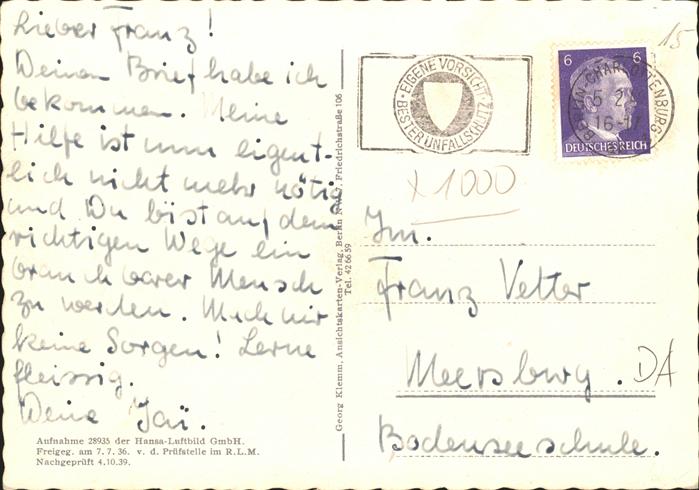 Lieber Franz!
Deinen Brief habe ich
bekommen. Meine
Hilfe ist nun eigent-
lich nicht mehr nötig
und Du bist auf dem
richtigen Wege ein
brauchbarer Mensch
zu werden. Mach mir
keine Sorgen! Lerne
fleissig.
Deine
Aufnahme 28935 der Hansa-Luftbild GmbH.
Freigeg. am 7. 7. 36. v. d. Prüfstelle im R.L.M.
Nachgeprüft 4.10.39.
Georg Klemm, Ansichtskarten-Verlag, Berlin Friedrichstraße 106
Tel. 42 66 59
EIGENE VORSICHT
BESTER UNFALLSCHUTZ
6 6
DEUTSCHES REICH
BERLIN-CHARLOTTENBURG
15
x 1000
Franz Vetter
Meersburg. DA
Bodenseeschule.